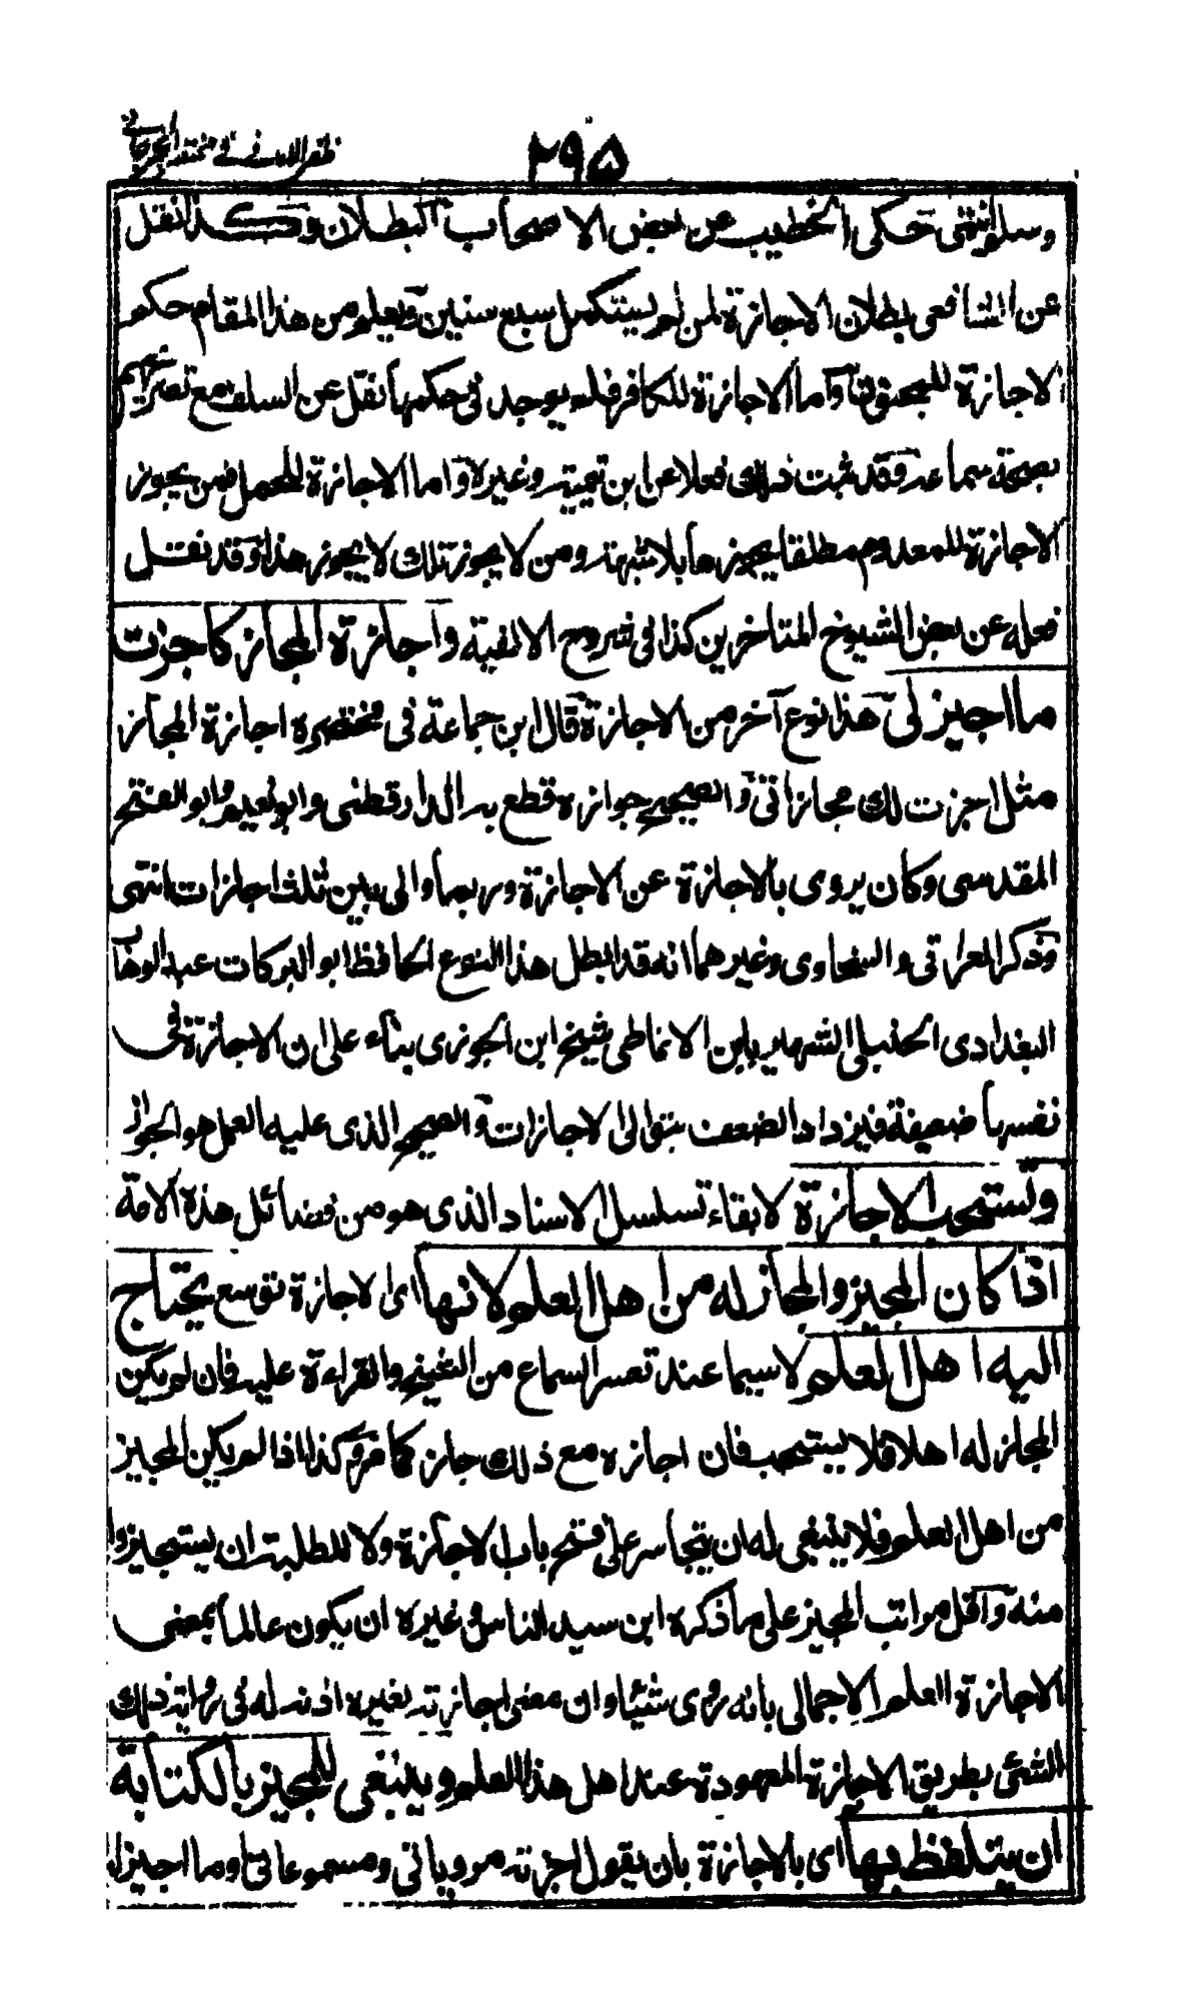 ظفر الاماني في مختصر الجرجاني
٢٩٥
وسلم انتهى حكى الخطيب عن بعض الاصحاب البطلان وكذا نقل
عن الشافعى بطلان الاجازة لمن لم يستكمل سبع سنين ويعلم من هذا المقام حكم
الاجازة للمجنون واما الاجازة للكافر فلم يوجد في حكمها نقل عن السلف مع تصريحهم
بصحة سماعه وقد ثبت ذلك فعلا عن ابن تيمية وغيره واما الاجازة للحمل فمن يجوز
الاجازة للمعدوم مطلقا يجوزها بلا شبهة ومن لا يجوز تلك لا يجوز هذا وقد نقل
فعله عن بعض الشيوخ المتاخرين كذا في شروح الالفية واجازة المجاز كاجزت
ما اجيز لى هذا نوع آخر من الاجازة قال ابن جماعة في مختصره اجازة المجاز
مثل اجزت لك مجازاتي والصحيح جوازه قطع به الدارقطنى وابو نعيم وابو الفتح
المقدسى وكان يروى بالاجازة عن الاجازة وربما والى بين ثلث اجازات انتهى
وذكر العراقي والسخاوى وغيرهما انه قد ابطل هذا النوع الحافظ ابو البركات عبد الوهاب
البغدادى الحنبلى الشهير بابن الانماطى شيخ ابن الجوزى بناء على ان الاجازة في
نفسها ضعيفة فيزداد الضعف بتوالى الاجازات والصحيح الذى عليه العمل هو الجواز
وتستحب الاجازة لابقاء تسلسل الاسناد الذى هو من فضائل هذه الامة
اذا كان المجيز والمجاز له من اهل العلم لانها اى الاجازة توسع يحتاج
اليه اهل العلم لاسيما عند تعسر السماع من الشيخ والقراءة عليه فان لم يكن
المجاز له اهلا فلا يستحب فان اجازه مع ذلك جاز كما مر وكذا اذا لم يكن المجيز
من اهل العلم فلا ينبغى له ان يتجاسر على فتح باب الاجازة ولا للطلبة ان يستجيزوا
منه واقل مراتب المجيز على ما ذكره ابن سيد الناس وغيره ان يكون عالما بمعنى
الاجازة العلم الاجمالى بانه روى شيئا وان معنى اجازته لغيره اذنه له في رواية ذلك
الشئ بطريق الاجازة المعهودة عند اهل هذا العلم وينبغى للمجيز بالكتابة
ان يتلفظ بها اى بالاجازة بان يقول اجزته مروياتي ومسموعاتي وما اجيز لي